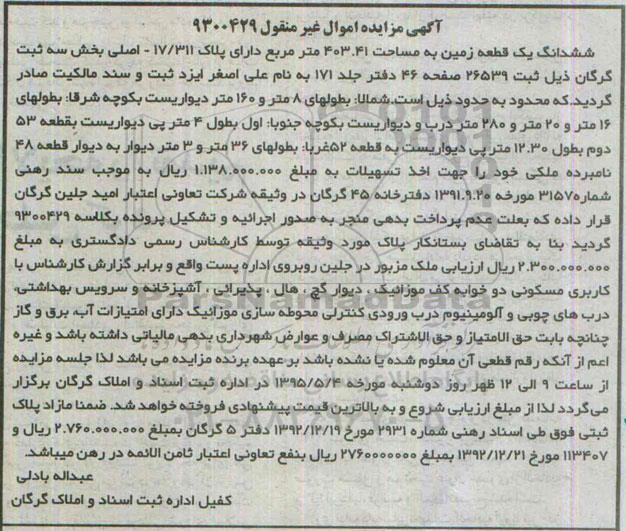 آگهی مزایده اموال غیر منقول ۹۳۰۰۴۲۹
ششدانگ یک قطعه زمین به مساحت ۴۰۳.۴۱ متر مربع دارای پلاک ۱۷/۳۱۱ - اصلی بخش سه ثبت
گرگان ذیل ثبت ۲۶۵۳۹ صفحه ۴۶ دفتر جلد ۱۷۱ به نام علی اصغر ایزد ثبت و سند مالکیت صادر
گردید.که محدود به حدود ذیل است.شمالا: بطولهای ۸ متر و ۱۶۰ متر دیواریست بکوچه شرقا: بطولهای
۱۶ متر و ۲۰ متر و ۲۸۰ متر درب و دیواریست بکوچه جنوبا: اول بطول ۴ متر پی دیواریست بقطعه ۵۳
دوم بطول ۱۲.۳۰ متر پی دیواریست به قطعه ۵۲غربا: بطولهای ۳۶ متر و ۳ متر دیوار به دیوار قطعه ۴۸
نامبرده ملکی خود را جهت اخذ تسهیلات به مبلغ ۱.۱۳۸.۰۰۰.۰۰۰ ریال به موجب سند رهنی
شماره۳۱۵۷ مورخه ۱۳۹۱.۹.۲۰ دفترخانه ۴۵ گرگان در وثیقه شرکت تعاونی اعتبار امید جلین گرگان
قرار داده که بعلت عدم پرداخت بدهی منجر به صدور اجرائیه و تشکیل پرونده بکلاسه ۹۳۰۰۴۲۹
گردید بنا به تقاضای بستانکار پلاک مورد وثیقه توسط کارشناس رسمی دادگستری به مبلغ
۲.۳۰۰.۰۰۰.۰۰۰ ریال ارزیابی ملک مزبور در جلین روبروی اداره پست واقع و برابر گزارش کارشناس با
کاربری مسکونی دو خوابه کف موزائیک ، دیوار گچ ، هال ، پذیرائی ، آشپزخانه و سرویس بهداشتی،
درب های چوبی و آلومینیوم درب ورودی کنترلی محوطه سازی موزائیک دارای امتیازات آب، برق و گاز
چنانچه بابت حق الامتیاز و حق الاشتراک مصرف و عوارض شهرداری بدهی مالیاتی داشته باشد و غیره
اعم از آنکه رقم قطعی آن معلوم شده یا نشده باشد بر عهده برنده مزایده می باشد لذا جلسه مزایده
از ساعت ۹ الی ۱۲ ظهر روز دوشنبه مورخه ۱۳۹۵/۵/۴ در اداره ثبت اسناد و املاک گرگان برگزار
می‌گردد لذا از مبلغ ارزیابی شروع و به بالاترین قیمت پیشنهادی فروخته خواهد شد. ضمنا مازاد پلاک
ثبتی فوق طی اسناد رهنی شماره ۲۹۳۱ مورخ ۱۳۹۲/۱۲/۱۹ دفتر ۵ گرگان بمبلغ ۲.۷۶۰.۰۰۰.۰۰۰ ریال و
۱۱۳۴۰۷ مورخ ۱۳۹۲/۱۲/۲۱ بمبلغ ۲۷۶۰۰۰۰۰۰۰ ریال بنفع تعاونی اعتبار ثامن الائمه در رهن میباشد.
عبداله بادلی
کفیل اداره ثبت اسناد و املاک گرگان
ParsNamadData